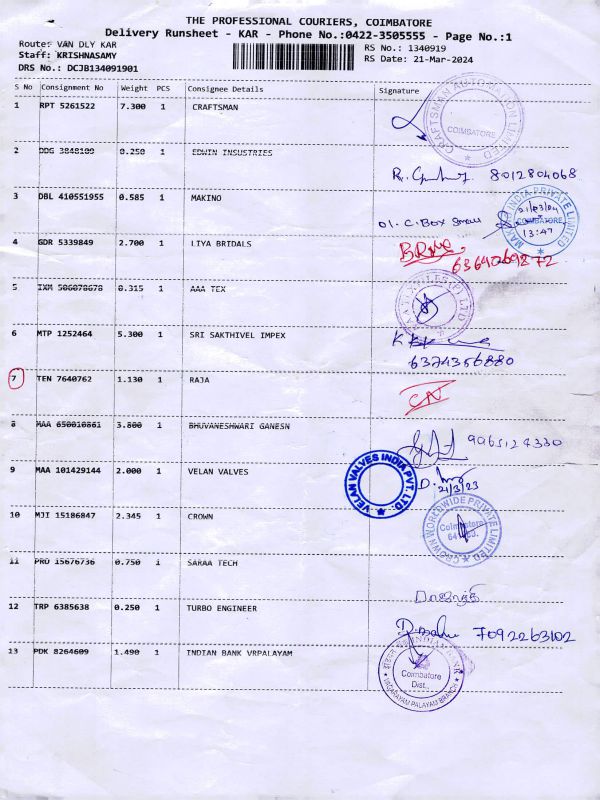 THE PROFESSIONAL COURIERS, COIMBATORE
Delivery Runsheet - KAR - Phone No.:0422-3505555 - Page No.:1
Route: VAN DLY KAR
RS No.: 1340919
Staff: KRISHNASAMY
RS Date: 21-Mar-2024
DRS No.: DCJB134091901
S No Consignment No Weight PCS Consignee Details Signature
1 RPT 5261522 7.300 1 CRAFTSMAN
CRAFTSMAN AUTOMATION LIMITED
COIMBATORE
2 DDG 3848109 0.250 1 EDWIN INSUSTRIES
8012804068
3 DBL 410551955 0.585 1 MAKINO
01. C. Box Small
INDIA PRIVATE LIMITED
COIMBATORE
13:47
4 GDR 5339849 2.700 1 LIYA BRIDALS
6364269872
5 IXM 506078678 0.315 1 AAA TEX
6 MTP 1252464 5.300 1 SRI SAKTHIVEL IMPEX
6374356880
7 TEN 7640762 1.130 1 RAJA
8 MAA 650010861 3.800 1 BHUVANESHWARI GANESN
9965124330
9 MAA 101429144 2.000 1 VELAN VALVES
VELAN VALVES INDIA PVT. LTD.
21/3/23
10 MJI 15186847 2.345 1 CROWN
CROWN WORLDWIDE PRIVATE LIMITED
Coimbatore
11 PRO 15676736 0.750 1 SARAA TECH
12 TRP 6385638 0.250 1 TURBO ENGINEER
7092263102
13 PDK 8264609 1.490 1 INDIAN BANK VRPALAYAM
INDIAN BANK
Coimbatore
Dist.